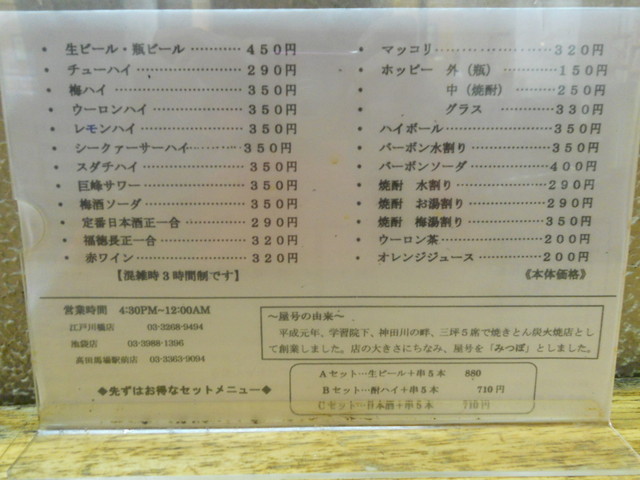 ・ 生ビール・瓶ビール ………… 450円
・ チューハイ ………………… 290円
・ 梅ハイ ……………………… 350円
・ ウーロンハイ ……………… 350円
・ レモンハイ ………………… 350円
・ シークァーサーハイ ……… 350円
・ スダチハイ ………………… 350円
・ 巨峰サワー ………………… 350円
・ 梅酒ソーダ ………………… 350円
・ 定番日本酒正一合 ………… 290円
・ 福徳長正一合 ……………… 320円
・ 赤ワイン …………………… 320円
【混雑時3時間制です】
・ マッコリ …………………… 320円
・ ホッピー 外（瓶） ………… 150円
中（焼酎） ………… 250円
グラス ………… 330円
・ ハイボール ………………… 350円
・ バーボン水割り …………… 350円
・ バーボンソーダ …………… 400円
・ 焼酎 水割り ……………… 290円
・ 焼酎 お湯割り …………… 290円
・ 焼酎 梅湯割り …………… 350円
・ ウーロン茶 ………………… 200円
・ オレンジジュース ………… 200円
《本体価格》
営業時間 4:30PM~12:00AM
江戸川橋店 03-3268-9494
池袋店 03-3988-1396
高田馬場駅前店 03-3363-9094
◆先ずはお得なセットメニュー◆
～屋号の由来～
平成元年、学習院下、神田川の畔、三坪5席で焼きとん炭火焼店とし
て創業しました。店の大きさにちなみ、屋号を「みつぼ」としました。
Aセット…生ビール＋串5本 880
Bセット…酎ハイ＋串5本 710円
Cセット…日本酒＋串5本 710円